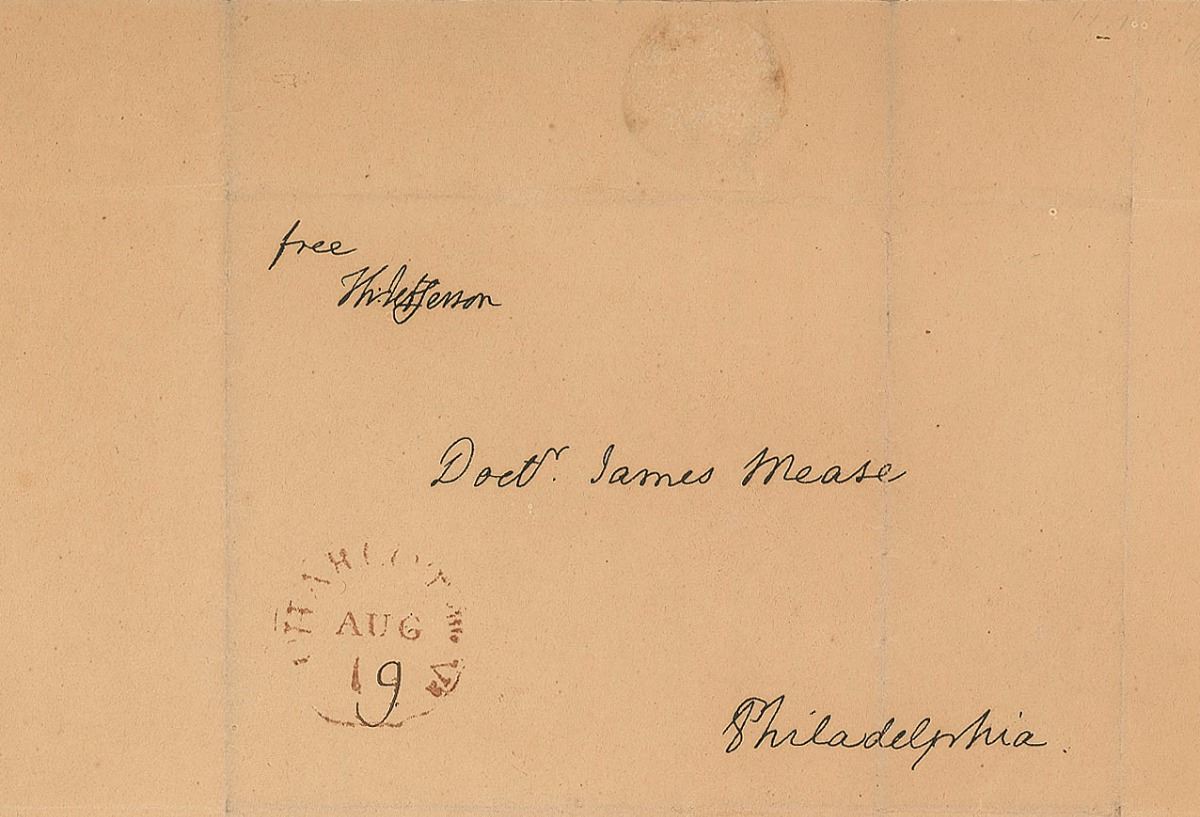 free
Th: Jefferson
Doctr. James Mease
AUG
19
Philadelphia.